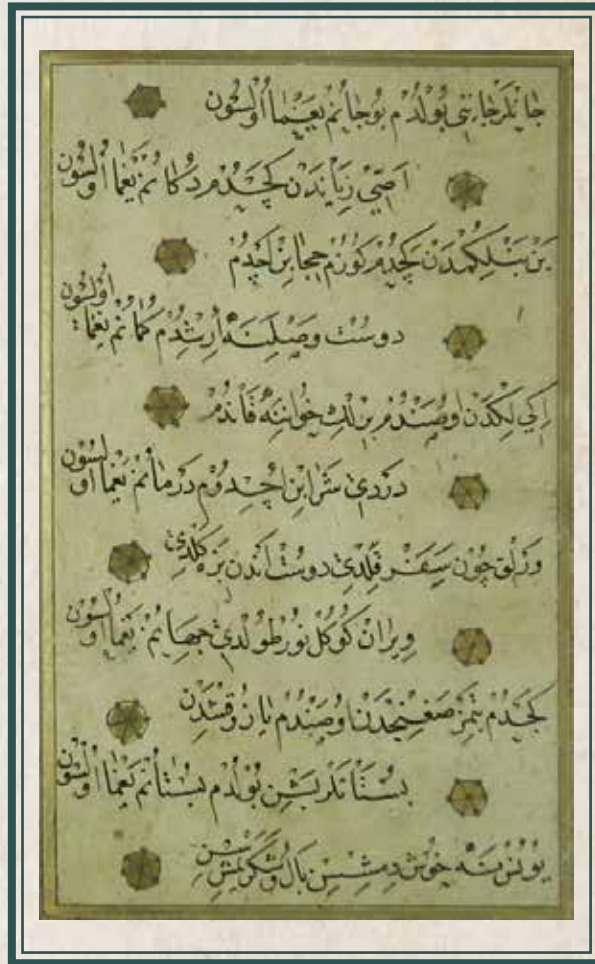 جانلر جانني بولدم بو جانم يغما اولسون
اصي زياندن كچدم دكانم يغما اولسون
بن بنلكمدن كچدم كوزم حجابن اچدم
دوست وصلنه ارشدم كمانم يغما اولسون
اكي لكدن اوصندم برلك خواننه قاندم
دردي شرابن اچدوم درمانم يغما اولسون
ورلق چون سفر قلدي دوست اندن بزه كلدي
ويران كوكل نور طولدي جهانم يغما اولسون
كچدم بتمز صغنجدن اوصندم ياز و قشدن
بستانلر بشن بولدم بستانم يغما اولسون
يونس نه خوش دمشسن بال و شكر يمشسن